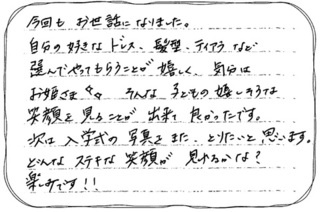 今回も お世話に なりました。
自分の好きな ドレス、髪型、ティアラなど
選んでやってもらうことが 嬉しく、気分は
お姫さま そんな 子どもの 嬉しそうな
笑顔を 見ることが 出来て 良かったです。
次は 入学式の 写真を また、とりたいと 思います。
どんな ステキな 笑顔が 見れるかな?
楽しみです!!